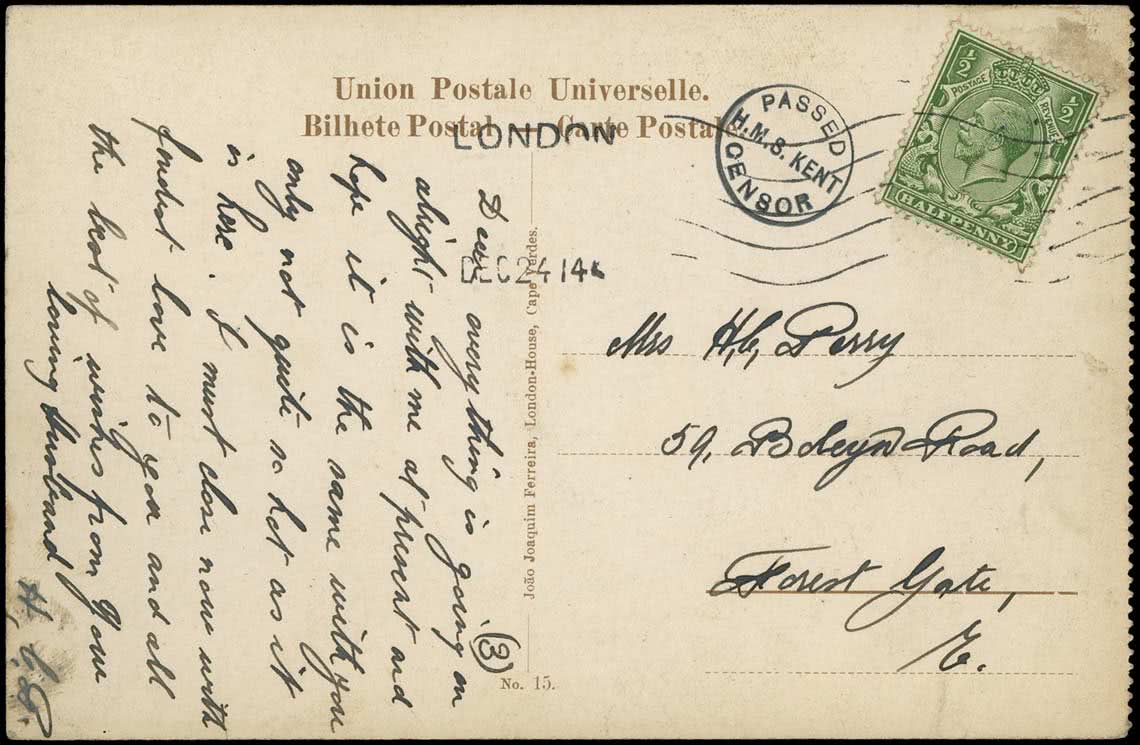 Union Postale Universelle.
Bilhete Postal — Carte Postale
LONDON
DEC 24 14
PASSED
H.M.S. KENT
CENSOR
½ ½
POSTAGE REVENUE
HALFPENNY
Dear every thing is going on
alright with me at present and
hope it is the same with you
only not quite so hot as it
is here. I must close now with
fondest love to you and all
the best of wishes from your
loving Husband
H. C.
(3)
João Joaquim Ferreira, London-House, Cape Verdes.
No. 15.
Mrs H, C, Perry
59, Boleyn Road,
Forest Gate,
E.